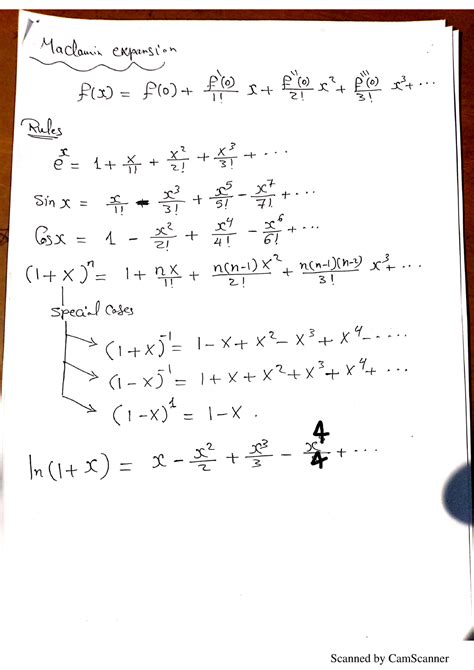 Maclaurin expansion
f(x) = f(0) + f'(0)/1! x + f''(0)/2! x² + f'''(0)/3! x³ + ...
Rules
eˣ = 1 + x/1! + x²/2! + x³/3! + ...
Sin x = x/1! - x³/3! + x⁵/5! - x⁷/7! + ...
Cos x = 1 - x²/2! + x⁴/4! - x⁶/6! + ...
(1+x)ⁿ = 1 + nx/1! + n(n-1)x²/2! + n(n-1)(n-2)/3! x³ + ...
Special Cases
(1+x)⁻¹ = 1 - x + x² - x³ + x⁴ - ....
(1-x)⁻¹ = 1 + x + x² + x³ + x⁴ + ...
(1-x)¹ = 1 - x .
ln(1+x) = x - x²/2 + x³/3 - x⁴/4 + ...
Scanned by CamScanner